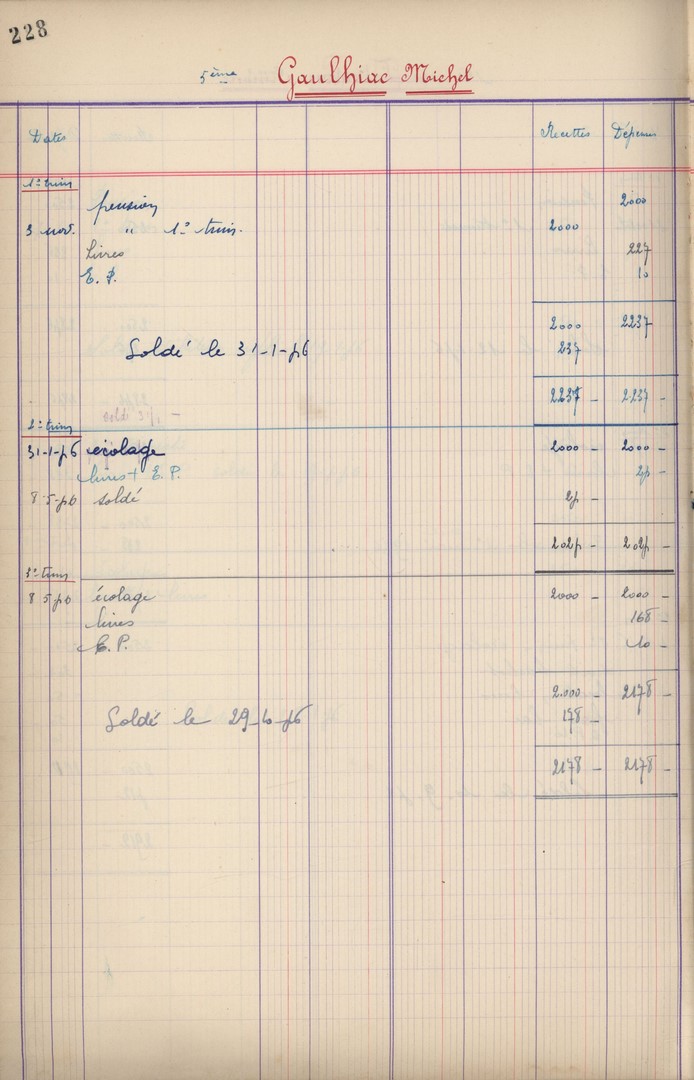 228
5ème Gaulhiac Michel
Dates Recettes Dépenses
1er trim
pension 2000
3 nov. " 1er trim. 2000
Livres 227
E. P. 10
2000 2237
Soldé le 31-1-56 237
2237 - 2237 -
2e trim
31-1-56 écolage 2000 - 2000 -
livres + E. P. 25 -
8-5-56 soldé 25 -
2025 - 2025 -
3e trim
8 5 56 écolage 2000 - 2000 -
livres 168 -
E. P. 10 -
2.000 - 2178 -
Soldé le 29-6-56 178 -
2178 - 2178 -